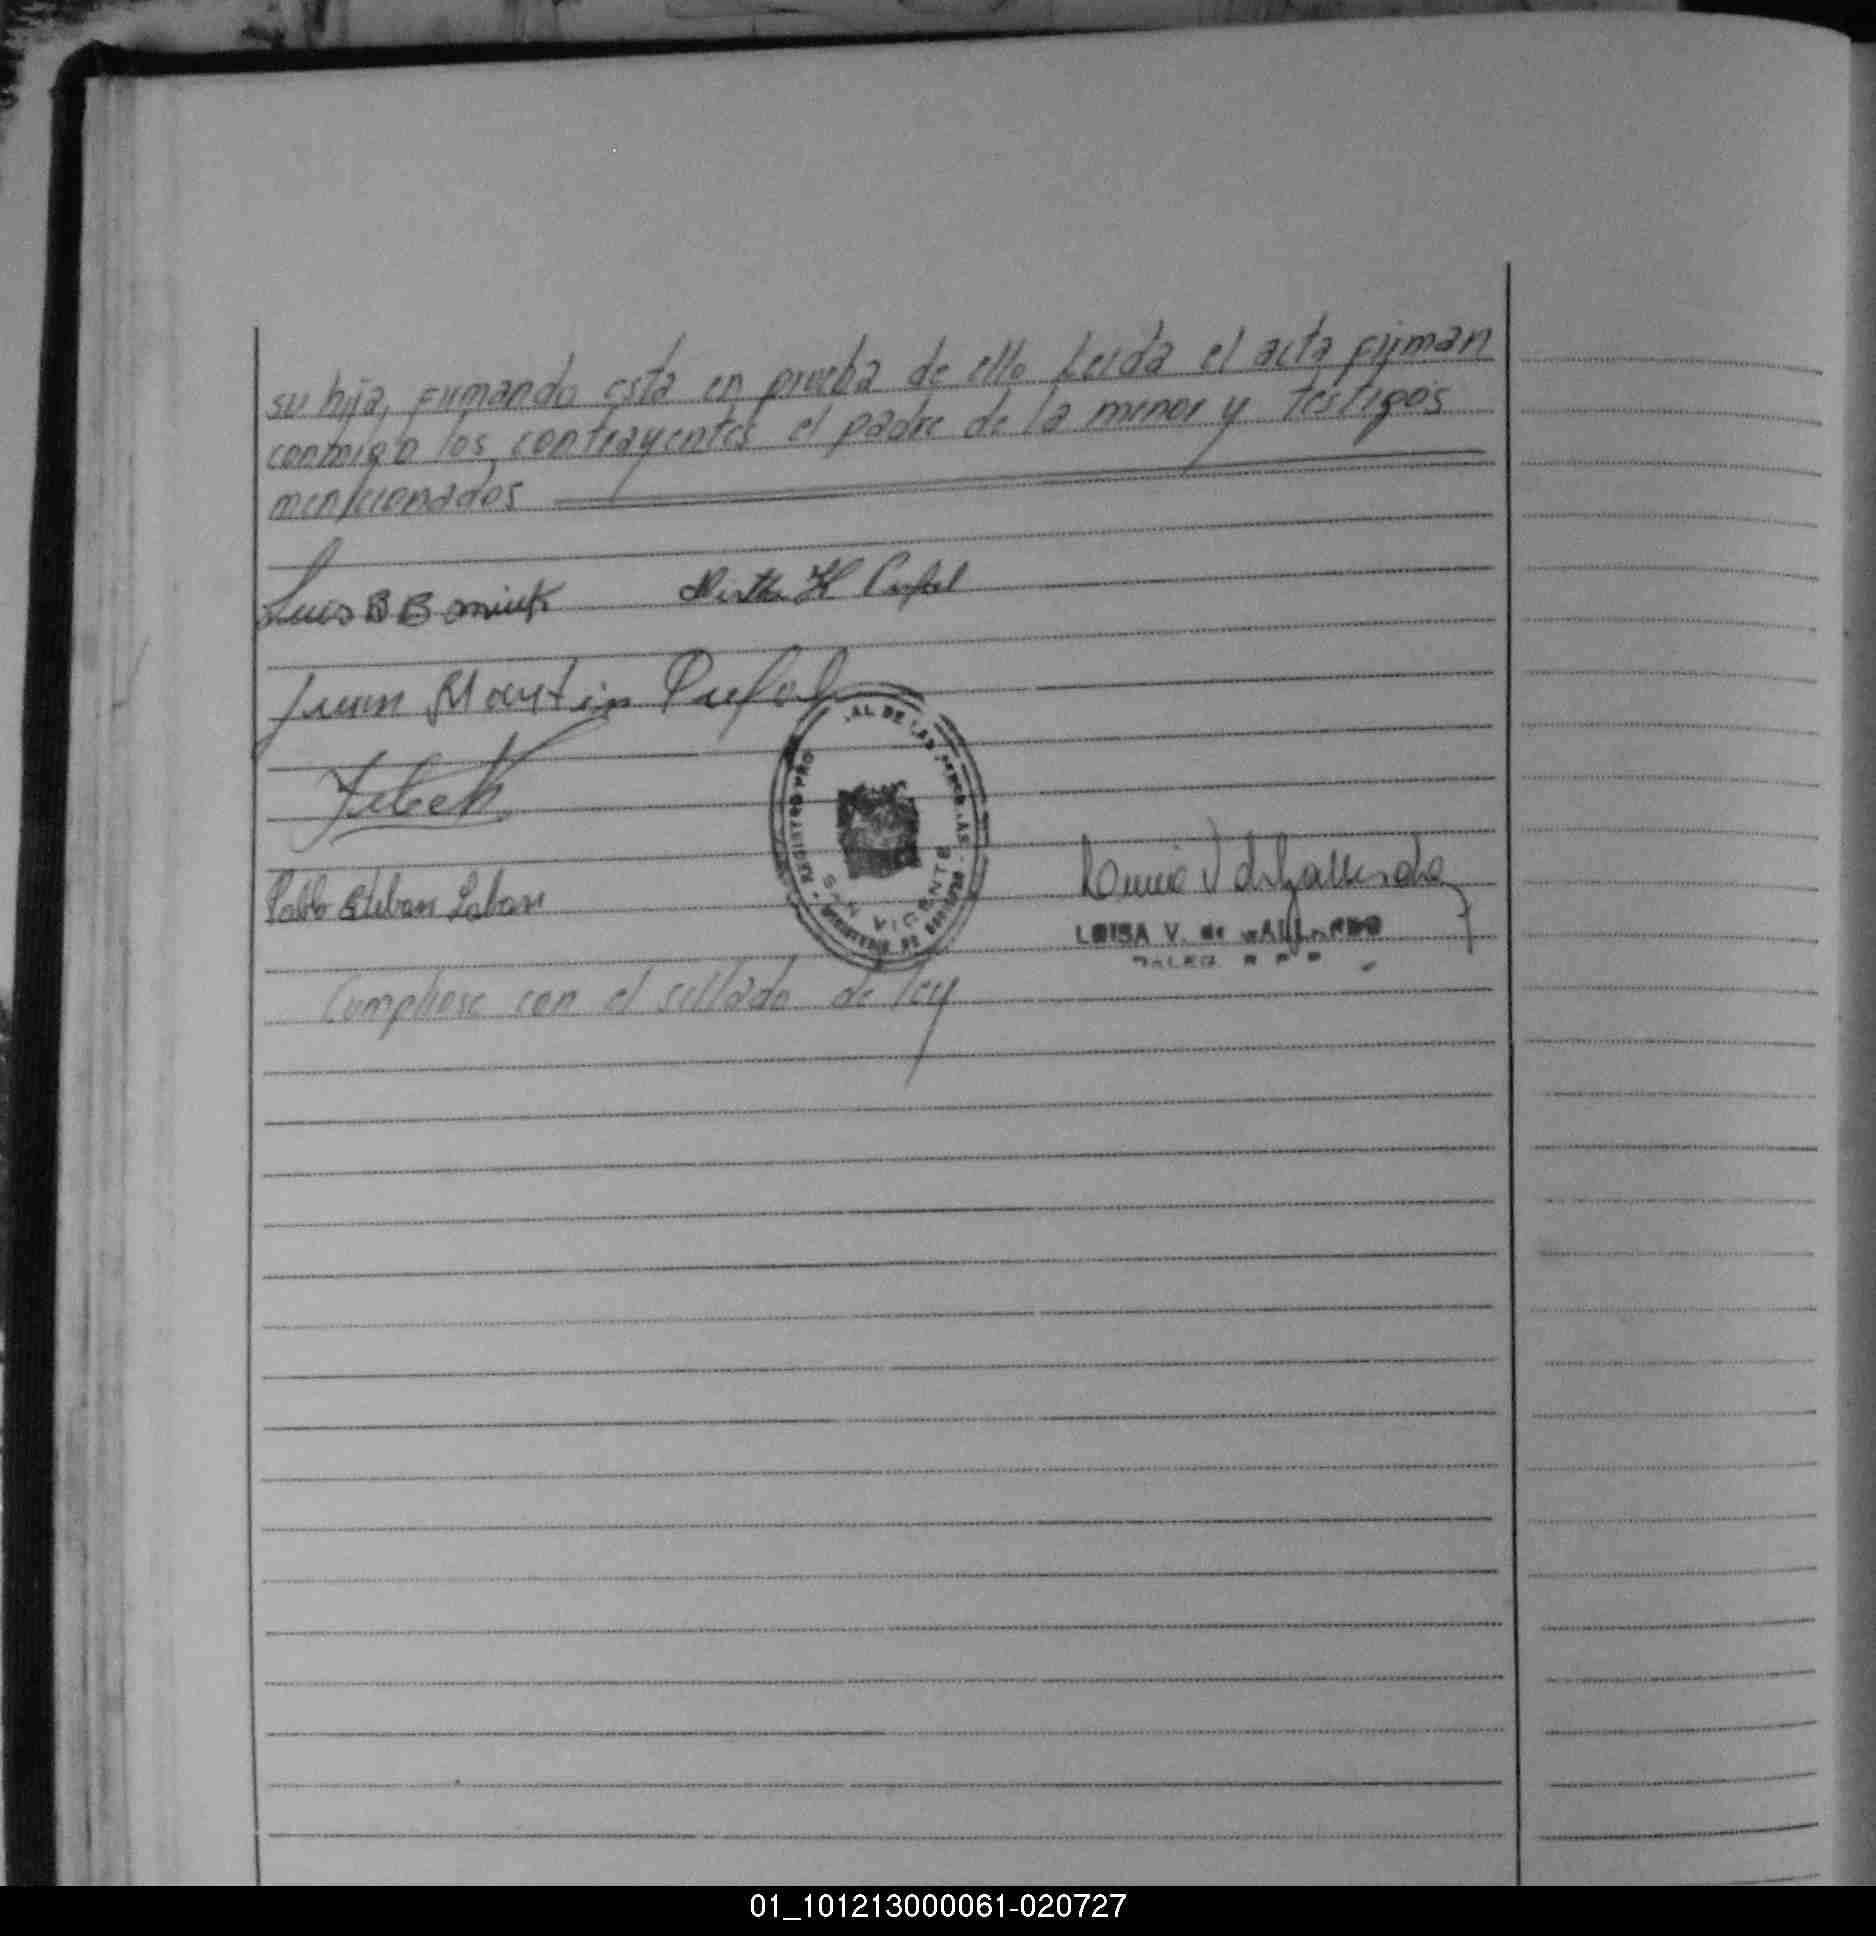 su hija, firmando esta en prueba de ello Leida el acta firman
conmigo los contrayentes el padre de la menor y testigos
mencionados
Luis B B
Mirtha H Pufal
Juan Martin Pufal
Pablo Esteban Laban
REGISTRO PRO AL DE LAS PERSONAS
SAN VICENTE
MINISTERIO DE GOBIERNO
LUISA V. de GALLARDO
Cumpliose con el sellado de ley
01_101213000061-020727